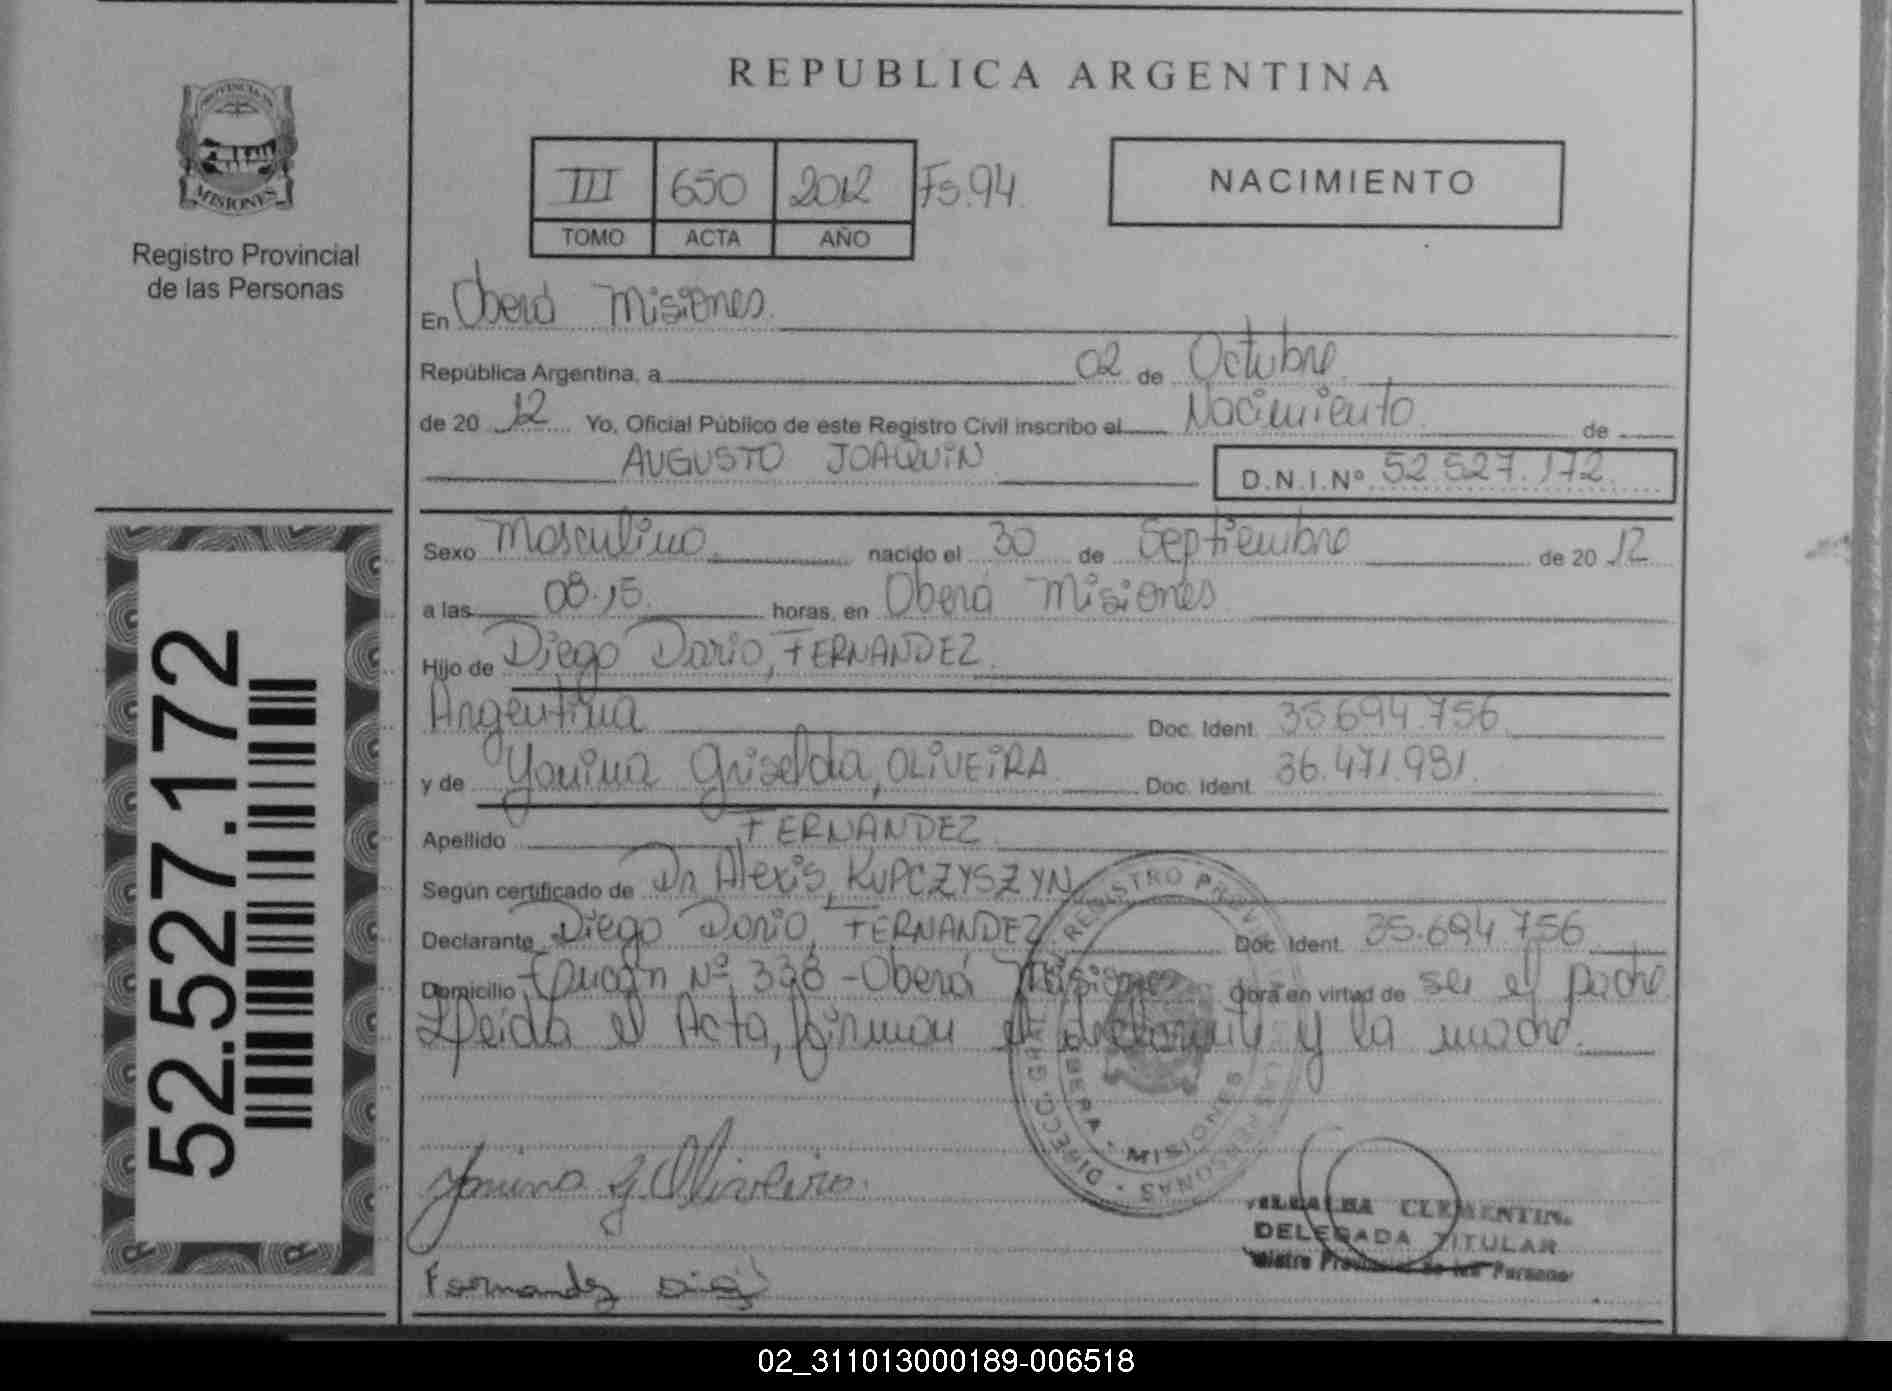 REPUBLICA ARGENTINA
PROVINCIA DE
MISIONES
Registro Provincial
de las Personas
III 650 2012 Fs. 94.
TOMO ACTA AÑO
NACIMIENTO
En Oberá Misiones.
República Argentina, a 02 de Octubre
de 20 12 Yo, Oficial Público de este Registro Civil inscribo el Nacimiento de
AUGUSTO JOAQUIN D.N.I.Nº 52.527.172
Sexo Masculino nacido el 30 de Septiembre de 20 12
a las 08.15. horas, en Oberá Misiones
Hijo de Diego Dario, FERNANDEZ.
Argentina Doc. Ident. 35.694.756
y de Yanina Griselda, OLIVEIRA Doc. Ident. 36.471.981.
Apellido FERNANDEZ
Según certificado de Dr. Alexis, KUPCZYSZYN
Declarante Diego Dario, FERNANDEZ Doc. Ident. 35.694.756
Domicilio Nº 338 - Oberá Misiones Obra en virtud de ser el padre
Leida el Acta, firman el declarante y la madre.
REGISTRO PROVINCIAL DE LAS PERSONAS
DIRECC. GRAL.
OBERA - MISIONES
Yanina G Oliveira.
CLEMENTIN
DELEGADA TITULAR
Registro Provincial de las Personas
Fernandez Diego
52.527.172
02_311013000189-006518